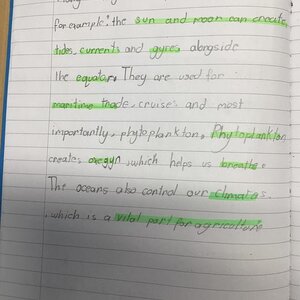 for example: the sun and moon can create
tides, currents and gyres alongside
the equator. They are used for
maritime trade, cruises and most
importantly, phytoplankton. Phytoplankton
creates oxegyn, which helps us breathe.
The oceans also control our climates.
which is a vital part for agriculture